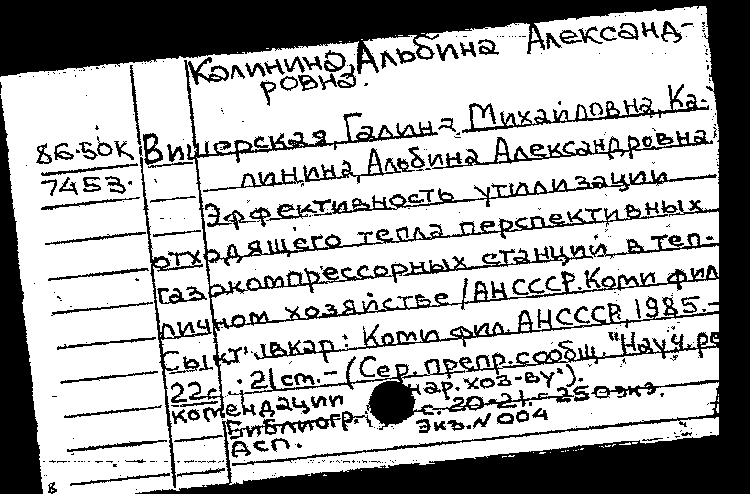 Калинина, Альбина Александ-
ровна.
86-50К
7453.
Вишерская, Галина Михайловна, Ка-
линина, Альбина Александровна
Эффективность утилизации
отходящего тепла перспективных
газокомпрессорных станций в теп-
личном хозяйстве / АН СССР. Коми фил
Сыктывкар: Коми фил. АН СССР, 1985.-
22с.; 21 cm. - (Сер. препр. сообщ. "Науч. ре
комендации нар. хоз-ву").
Библиогр. с. 20-21. - 250экз.
Экз. N 004
Асп.
8